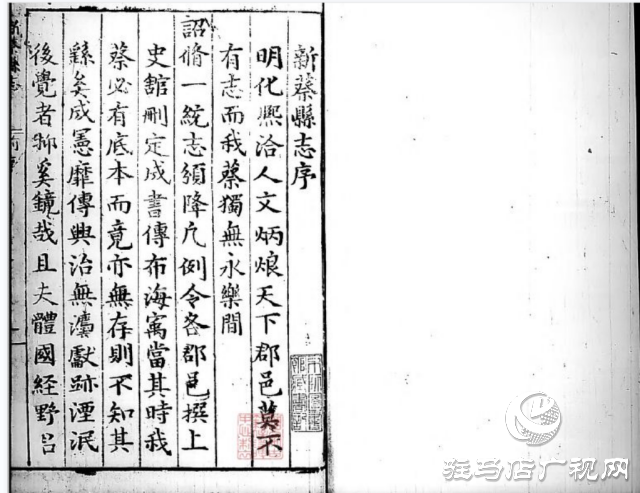 新蔡縣志序
明化熈洽人文炳烺天下郡邑莫不
有志而我蔡獨無永樂間
詔脩一統志頒降凡例令各郡邑撰上
史舘刪定成書傳布海寓當其時我
蔡必有底本而竟亦無存則不知其
繇矣成憲靡傳興治無灋獻跡湮泯
後覺者抑奚鏡哉且夫體國経野吕
驻马店广视网